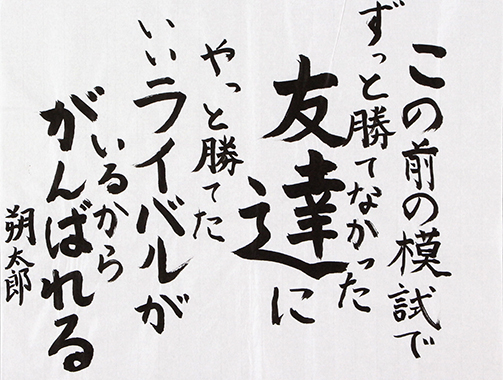 この前の模試で
ずっと勝てなかった
友達に
やっと勝てた
いいライバルが
いるから
がんばれる
朔太郎